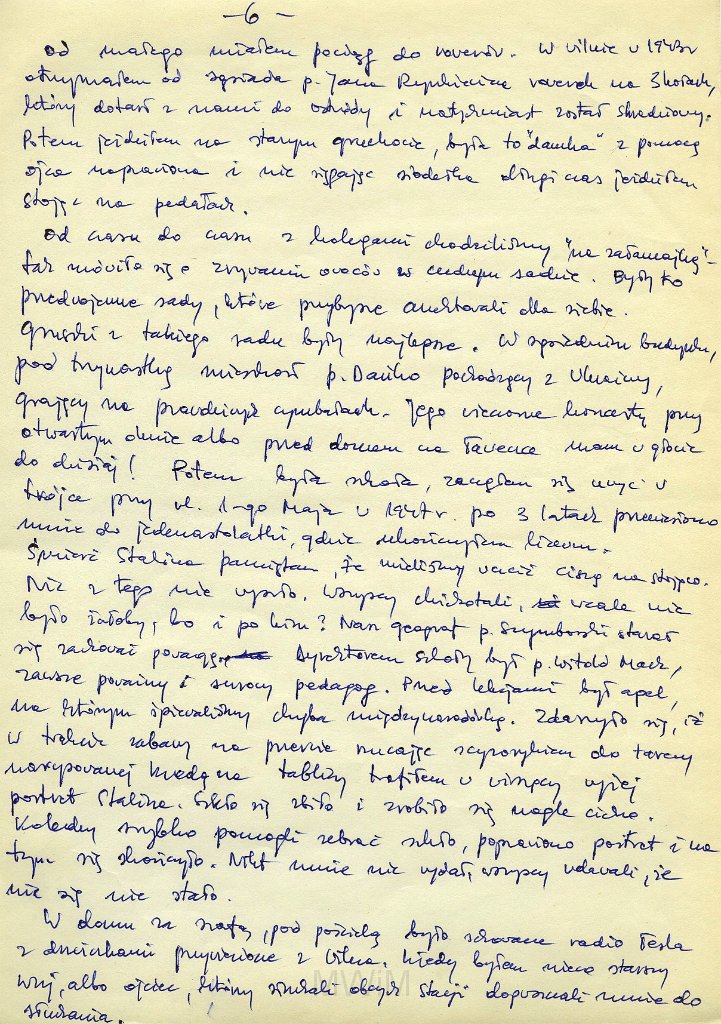 – 6 –
od małego miałem pociąg do rowerów. W Wilnie w 1943r
otrzymałem od sąsiada p. Jana Rynkiewicza rowerek na 3 kołach,
który dotarł z nami do Ostródy i natychmiast został skradziony.
Potem jeździłem na starym gruchocie, była to "damka" z pomocą
ojca naprawiona i nie sięgając siodełka długi czas jeździłem
stojąc na pedałach.
Od czasu do czasu z kolegami chodziliśmy "na załamajkę" –
tak mówiło się o zrywaniu owoców w cudzym sadzie. Były to
przedwojenne sady, które przybysze anektowali dla siebie.
Gruszki z takiego sadu były najlepsze. W sąsiednim budynku,
pod trzynastką mieszkał p. Danko pochodzący z Ukrainy,
grający na prawdziwych cymbałach. Jego wieczorne koncerty przy
otwartym oknie albo przed domem na ławence mam w głowie
do dzisiaj! Potem była szkoła, zacząłem się uczyć w
trójce przy ul. 1-go Maja w 1947r. po 3 latach przeniesiono
mnie do jedenastolatki, gdzie ukończyłem liceum.
Śmierć Stalina pamiętam, że mieliśmy uczcić ciszą na stojąco.
Nic z tego nie wyszło. Wszyscy chichotali, wcale nie
było żałoby, bo i po kim? Nasz geograf p. Szymborski starał
się zachować powagę, Dyrektorem szkoły był p. Witold Mack,
zawsze poważny i surowy pedagog. Przed lekcjami był apel,
na którym śpiewaliśmy chyba międzynarodówkę. Zdarzyło się, iż
w trakcie zabawy na przerwie rzucając scyzorykiem do tarczy
narysowanej kredą na tablicy trafiłem w wiszący wyżej
portret Stalina. Szkło się zbiło i zrobiło się nagle cicho.
Koledzy szybko pomogli zebrać szkło, poprawiono portret i na
tym się skończyło. Nikt mnie nie wydał, wszyscy udawali, że
nic się nie stało.
W domu za szafą, pod pościelą było schowane radio Tesla
z słuchawkami przywiezione z Wilna. Kiedy byłem nieco starszy
wuj, albo ojciec, którzy słuchali obcych stacji dopuszczali mnie do
słuchania.
MWiM